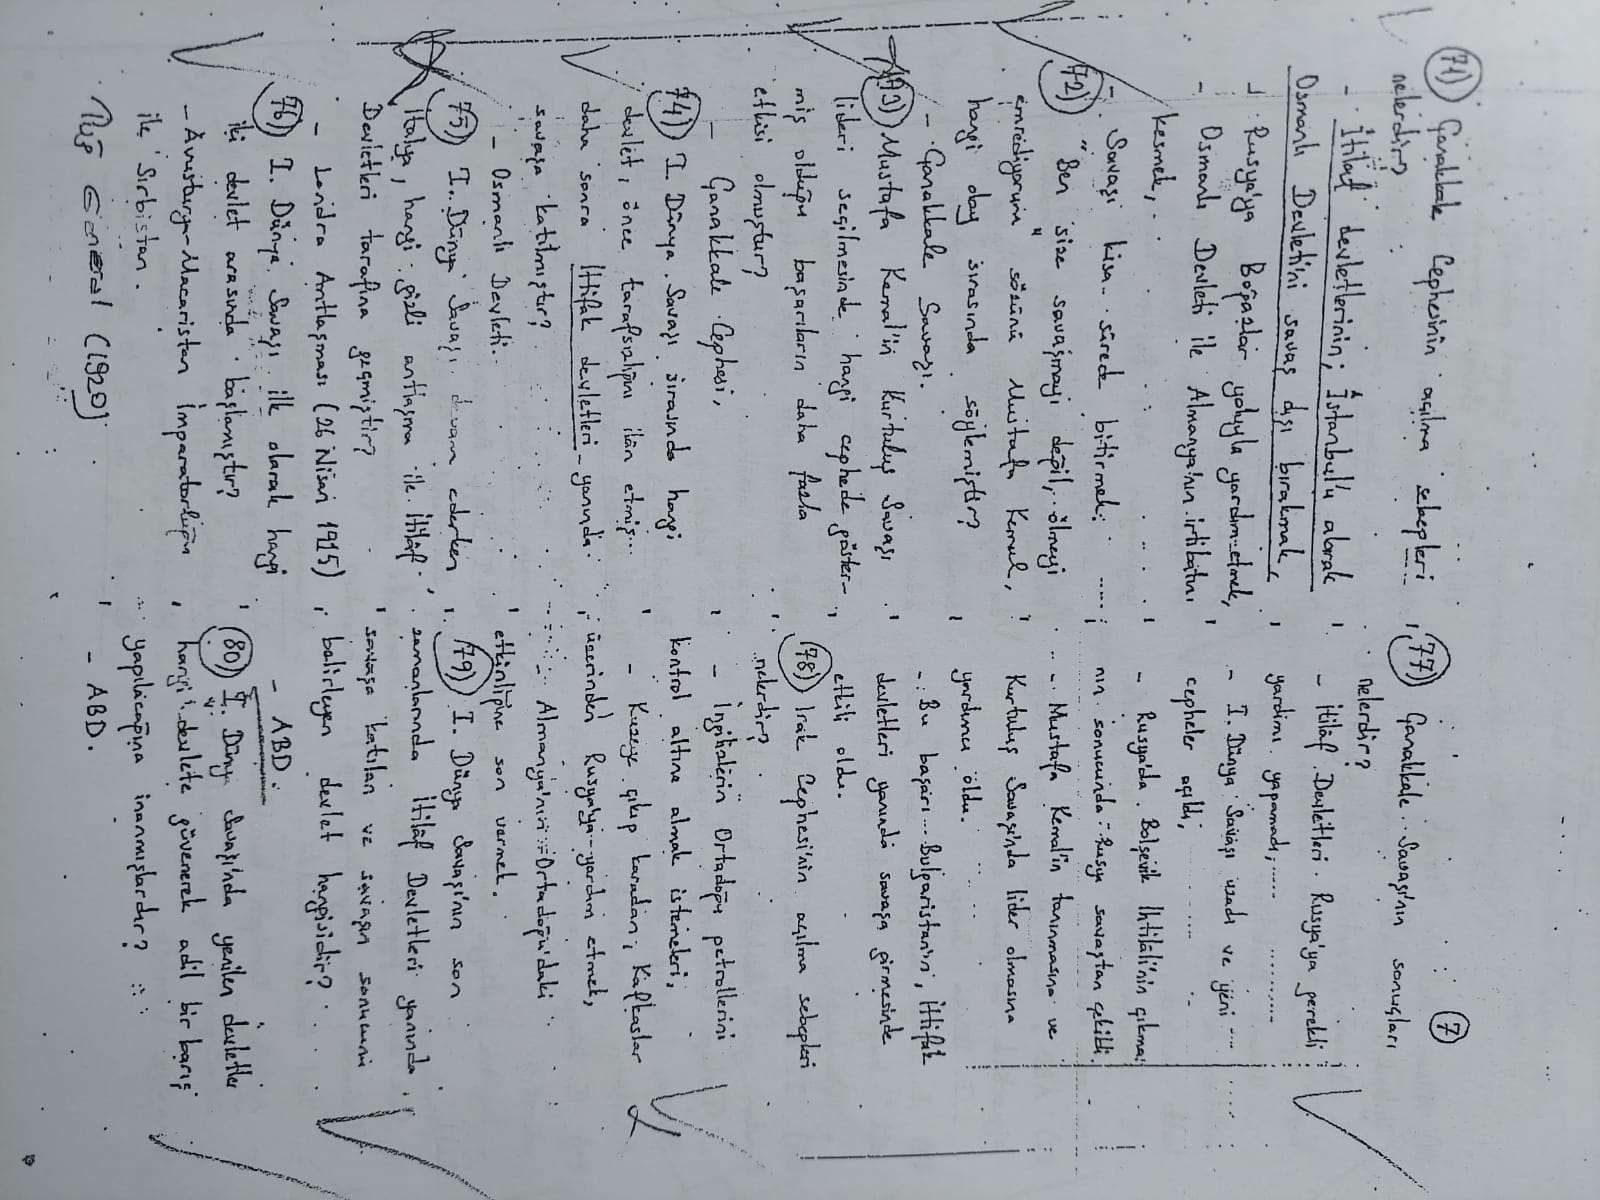 71) Çanakkale Cephesinin açılma sebepleri
nelerdir?
- İtilaf devletlerinin; İstanbul'u alarak
Osmanlı Devleti'ni savaş dışı bırakmak,
- Rusya'ya Boğazlar yoluyla yardım etmek,
- Osmanlı Devleti ile Almanya'nın irtibatını
kesmek,
- Savaşı kısa sürede bitirmek.
72) "Ben size savaşmayı değil, ölmeyi
emrediyorum" sözünü Mustafa Kemal,
hangi olay sırasında söylemiştir?
- Çanakkale Savaşı.
73) Mustafa Kemal'in Kurtuluş Savaşı
lideri seçilmesinde hangi cephede göster-
miş olduğu başarıların daha fazla
etkisi olmuştur?
- Çanakkale Cephesi,
74) I. Dünya Savaşı sırasında hangi
devlet, önce tarafsızlığını ilân etmiş
daha sonra İttifak devletleri yanında
savaşa katılmıştır?
- Osmanlı Devleti.
75) I. Dünya Savaşı devam ederken
İtalya, hangi gizli antlaşma ile İtilâf
Devletleri tarafına geçmiştir?
- Londra Antlaşması (26 Nisan 1915)
76) I. Dünya Savaşı ilk olarak hangi
iki devlet arasında başlamıştır?
- Avusturya-Macaristan İmparatorluğu
ile Sırbistan.
General (1920)
7
77) Çanakkale Savaşı'nın sonuçları
nelerdir?
- İtilâf Devletleri Rusya'ya gerekli
yardımı yapamadı;
- I. Dünya Savaşı uzadı ve yeni
cepheler açıldı;
- Rusya'da Bolşevik İhtilâli'nin çıkma-
nın sonucunda Rusya savaştan çekildi.
- Mustafa Kemal'in tanınmasına ve
Kurtuluş Savaşı'nda lider olmasına
yardımcı oldu.
- Bu başarı Bulgaristan'ın, İttifak
devletleri yanında savaşa girmesinde
etkili oldu.
78) Irak Cephesi'nin açılma sebepleri
nelerdir?
- İngilizlerin Ortadoğu petrollerini
kontrol altına almak istemeleri,
- Kuzeye çıkıp karadan, Kafkaslar
üzerinden Rusya'ya yardım etmek,
- Almanya'nın Ortadoğu'daki
etkinliğine son vermek.
79) I. Dünya Savaşı'nın son
zamanlarında İtilâf Devletleri yanında
savaşa katılan ve savaşın sonucunu
belirleyen devlet hangisidir?
- ABD.
80) I. Dünya Savaşı'nda yenilen devletler
hangi devlete güvenerek adil bir barış
yapılacağına inanmışlardır?
- ABD.